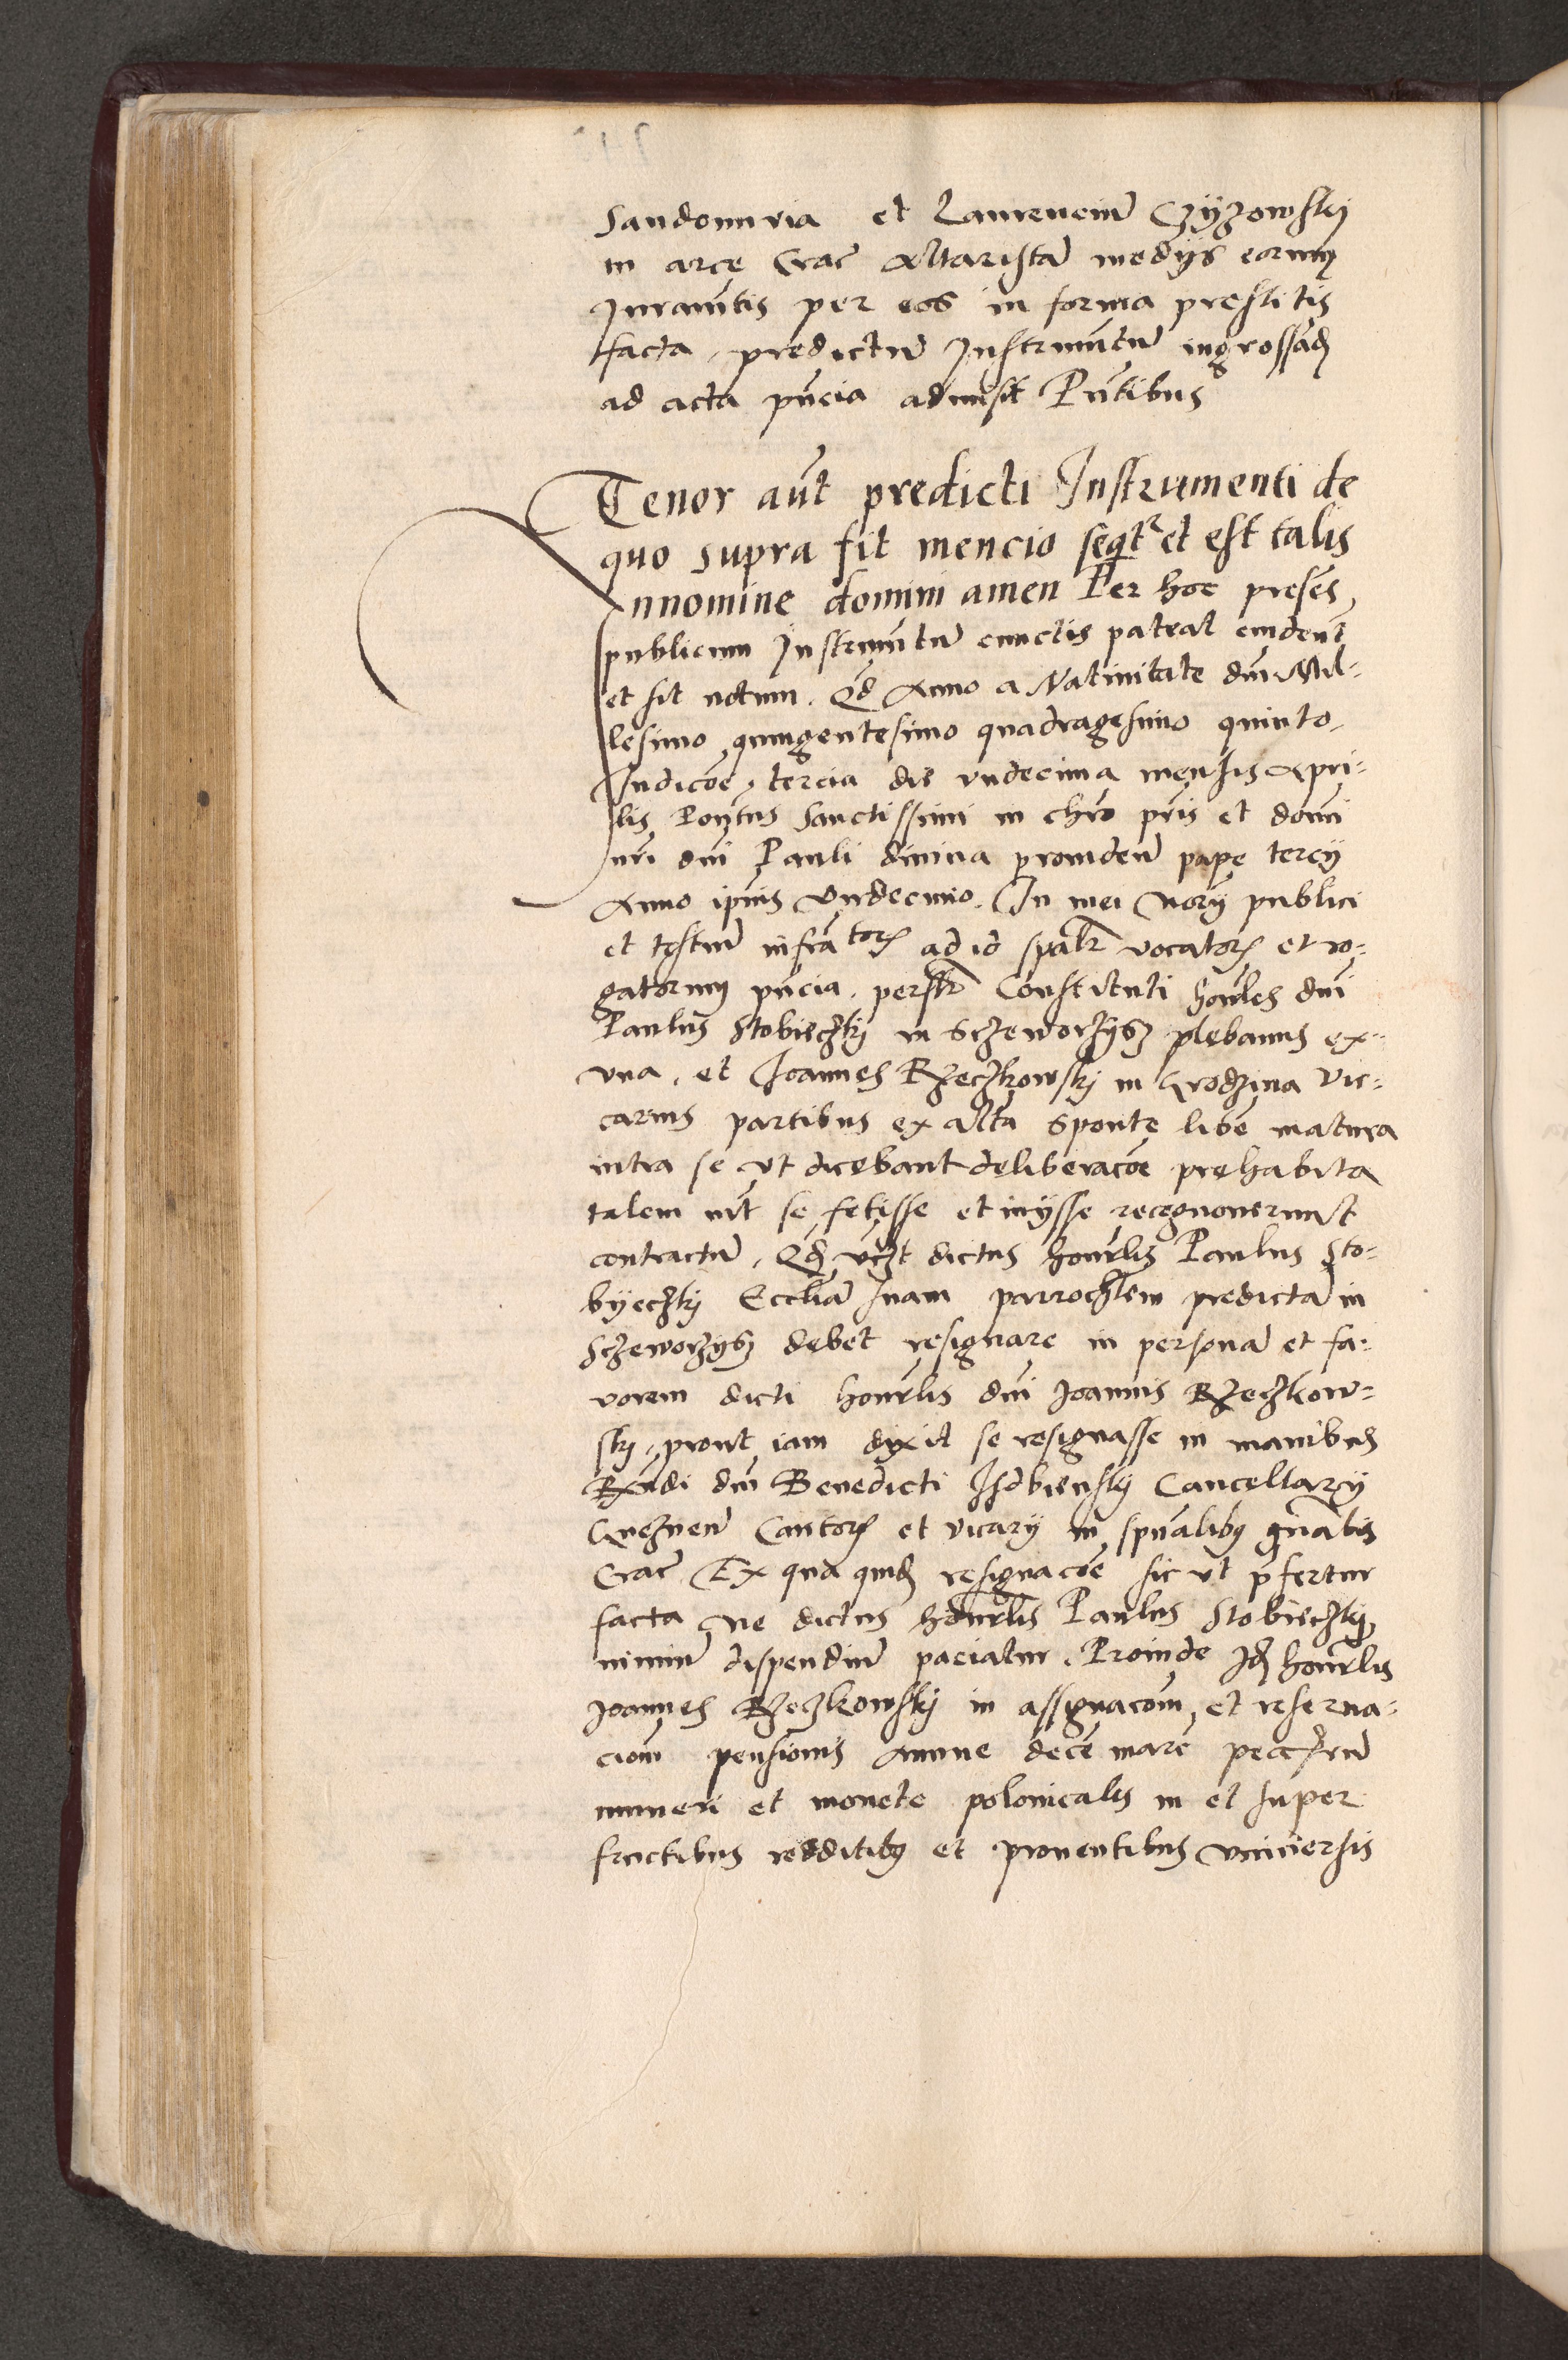 Sandomiria et Laurencium Czyzowskj
in arce Crac̄ Altaristam medijs eorum
Juramētis per eos in forma prestitis
facta, predictū Instrumētum ingrossaħ
ad acta pn̄cia admisit Pn̄tibus
Tenor aūt predicti Instrumenti de
quo supra fit mencio seqt͛r et est talis
Innomine domini amen Per hoc presēs
publicum Instrumētū cunctis pateat euidenī
et sit notum. Qd̄ Anno a Natiuitate dnī Mil=
lesimo quingentesimo quadragesimo quinto
Indicōe tercia die vndecima mensis Apri=
lis Pontus Sanctissimi in chr̄o pr̄is et domi
nrī dnī Pauli diuina prouiden̄ pape tercij
Anno ipīus Vndecimo. In mei Norīj publici
et testiū infra tor̄ ad id sp̄alr̄ vocator̄ et ro=
gatorum pn̄cia. persl̄r Constituti honr̄les dnī
Paulus Stobieczkj in Sczeworzysz plebanus ex
vna, et Joannes Rzeczkowskj in Grodzina Vic=
carius partibus ex altā sponte libē matura
intra se vt dicebant deliberacōe prehabita
talem int̄ se fecisse et inijsse recognouerunt
contractū, Qd̄ vꝫt dictus honr̄lis Paulus Sto=
byeczkj Eccliā suam parrochlēm predictā in
Sczeworzysz debet resignare in personā et fa=
vorem dicti honr̄lis dnī Joannis Rzeczkow=
skj, prout iam dixit se resignasse in manibus
Rn̄di dnī Benedicti Isdbienskj Cancellarij
Gneznen̄ Cantor̄ et vicarij in spūalibꝫ gn̄alis
Crac̄ Ex qua quid̄ resignacōe sic vt p̄fertur
facta ne dictus honr̄lis Paulus Stobieczkj
nimiū dispendiū paciatur. Proinde Id̄ honr̄lis
Joannes Rzeczkowskj in assignacōm et reserua=
ciom̄ pensionis Annue decē marc̄ pecc̄niarū
numeri et monete polonicalis in et super
fructibus redditibꝫ et prouentibus vniuersis